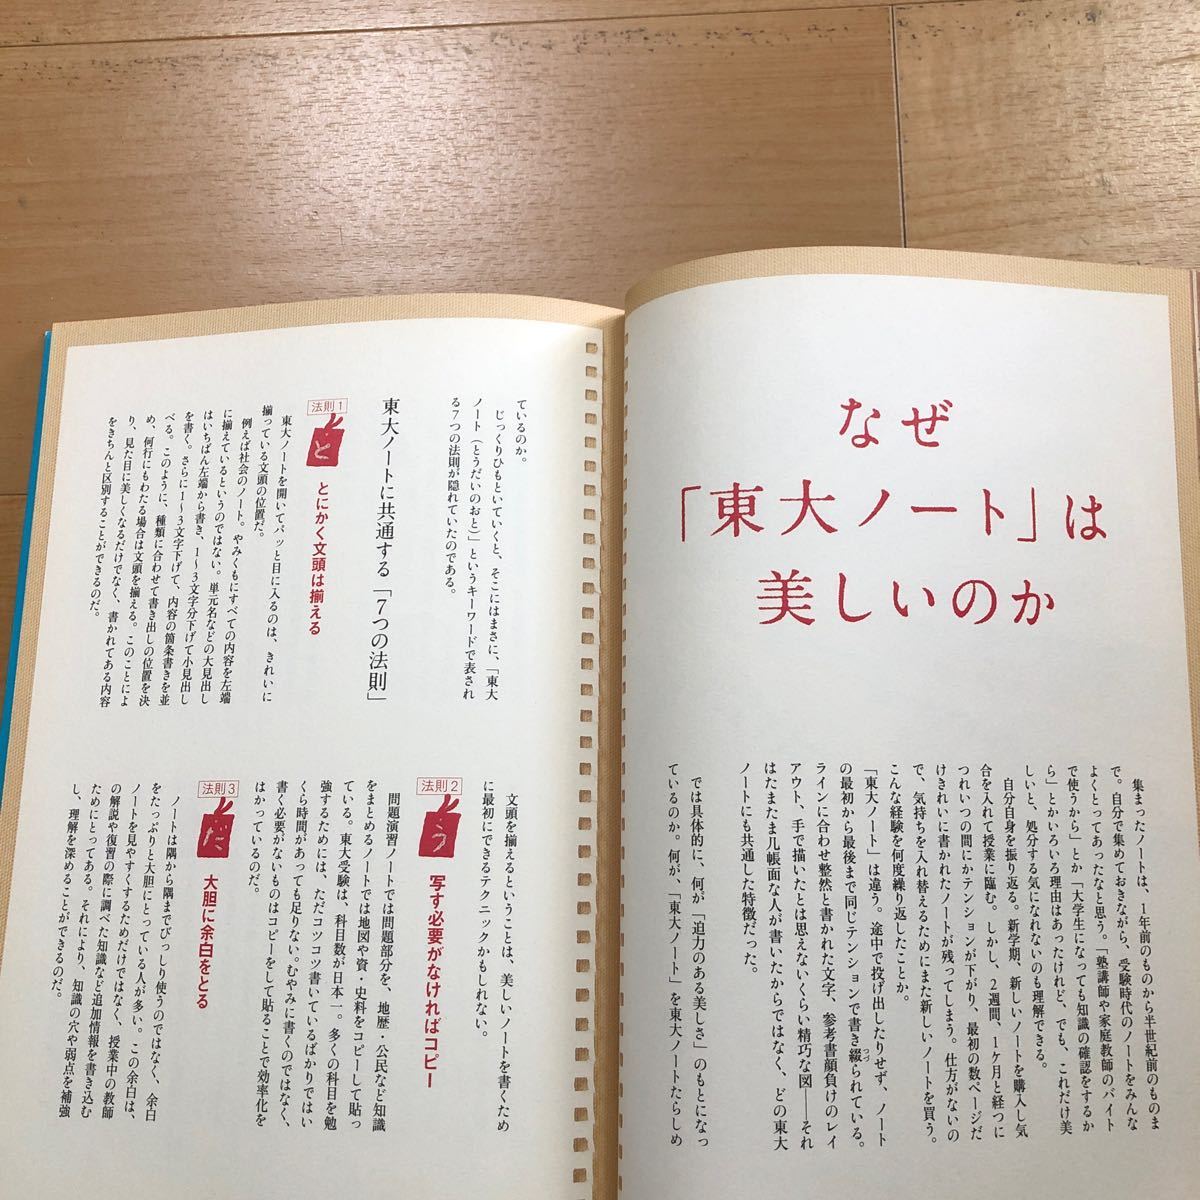 なぜ
「東大ノート」は
美しいのか
集まったノートは、1年前のものから半世紀前のものま
で。自分で集めておきながら、受験時代のノートをみんな
よくとってあったなと思う。「塾講師や家庭教師のバイト
で使うから」とか「大学生になっても知識の確認をするか
ら」とかいろいろ理由はあったけれど、でも、これだけ美
しいと、処分する気になれないのも理解できる。
自分自身を振り返る。新学期、新しいノートを購入し気
合を入れて授業に臨む。しかし、2週間、1ヶ月と経つに
つれいつの間にかテンションが下がり、最初の数ページだ
けきれいに書かれたノートが残ってしまう。仕方がないの
で、気持ちを入れ替えるためにまた新しいノートを買う。
こんな経験を何度繰り返したことか。
「東大ノート」は違う。途中で投げ出したりせず、ノート
の最初から最後まで同じテンションで書き綴られている。
ラインに合わせ整然と書かれた文字、参考書顔負けのレイ
アウト、手で描いたとは思えないくらい精巧な図――それ
はたまたま几帳面な人が書いたからではなく、どの東大
ノートにも共通した特徴だった。
では具体的に、何が「迫力のある美しさ」のもとになっ
ているのか。何が、「東大ノート」を東大ノートたらしめ
3
ているのか。
じっくりひもといていくと、そこにはまさに、「東大
ノート（とうだいのおと）」というキーワードで表され
る7つの法則が隠れていたのである。
東大ノートに共通する「7つの法則」
法則1
と
とにかく文頭は揃える
東大ノートを開いてパッと目に入るのは、きれいに
揃っている文頭の位置だ。
例えば社会のノート。やみくもにすべての内容を左端
に揃えているというのではない。単元名などの大見出し
はいちばん左端から書き、1～3文字分下げて小見出し
を書く。さらに1～3文字下げて、内容の箇条書きを並
べる。このように、種類に合わせて書き出しの位置を決
め、何行にもわたる場合は文頭を揃える。このことによ
り、見た目に美しくなるだけでなく、書かれてある内容
をきちんと区別することができるのだ。
文頭を揃えるということは、美しいノートを書くため
に最初にできるテクニックかもしれない。
法則2
う
写す必要がなければコピー
問題演習ノートでは問題部分を、地歴・公民など知識
をまとめるノートでは地図や資・史料をコピーして貼っ
ている。東大受験は、科目数が日本一。多くの科目を勉
強するためには、ただコツコツ書いているばかりではい
くら時間があっても足りない。むやみに書くのではなく、
書く必要がないものはコピーをして貼ることで効率化を
はかっているのだ。
法則3
だ
大胆に余白をとる
ノートは隅から隅までびっしり使うのではなく、余白
をたっぷりと大胆にとっている人が多い。この余白は、
ノートを見やすくするためだけではなく、授業中の教師
の解説や復習の際に調べた知識など追加情報を書き込む
ためにとってある。それにより、知識の穴や弱点を補強
し、理解を深めることができるのだ。